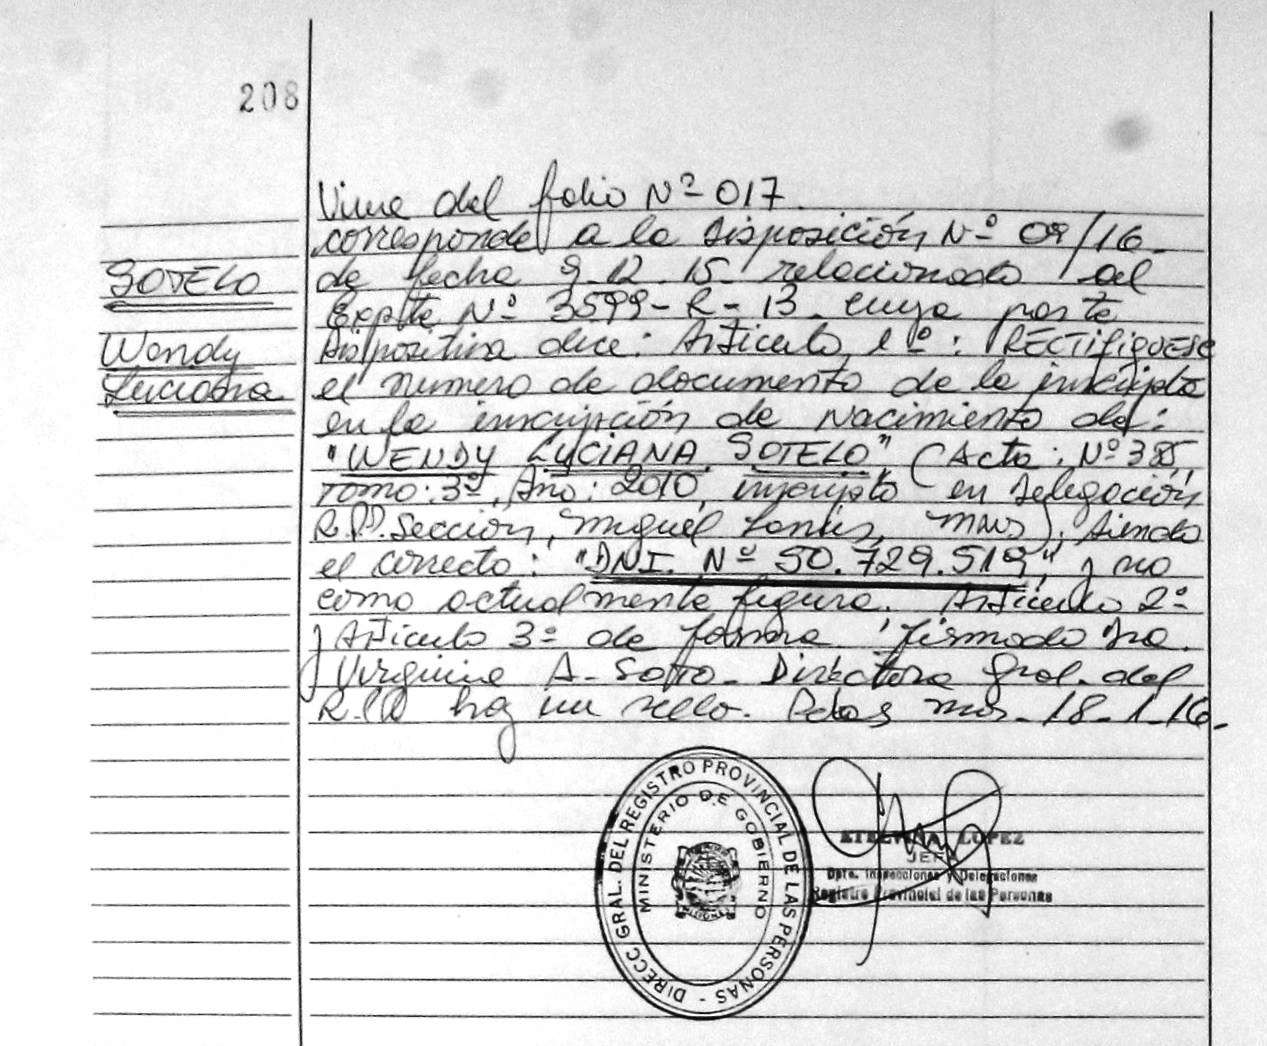 208
Viene del folio Nº 017.
corresponde a la disposición Nº 09/16.
SOTELO
de fecha 9.12.15 relacionado al
Expte Nº 3599-R-13. cuya parte
Wendy
dispositiva dice: Artículo 1º: RECTIFIQUESE
Luciana
el numero de documento de la inscripta
en la inscripción de nacimiento de:
"WENDY LUCIANA SOTELO" (Acta: Nº 385,
Tomo: 3º, Año: 2010, inscripto en Delegación
R.P.P. Sección, Miguel Lanús, Mnes); siendo
el correcto: "DNI. Nº 50.729.519," y no
como actualmente figura. Artículo 2º
y Artículo 3º de forma. firmado Dra.
Virginia A. Soto. Directora Gral. del
hay un sello. Pdas Mnes. 18-1-16.
DIRECC. GRAL. DEL REGISTRO PROVINCIAL DE LAS PERSONAS -
MINISTERIO DE GOBIERNO
MISIONES
ETELVINA LOPEZ
JEFA
Dpto. Inspecciones y Delegaciones
Registro Provincial de las Personas